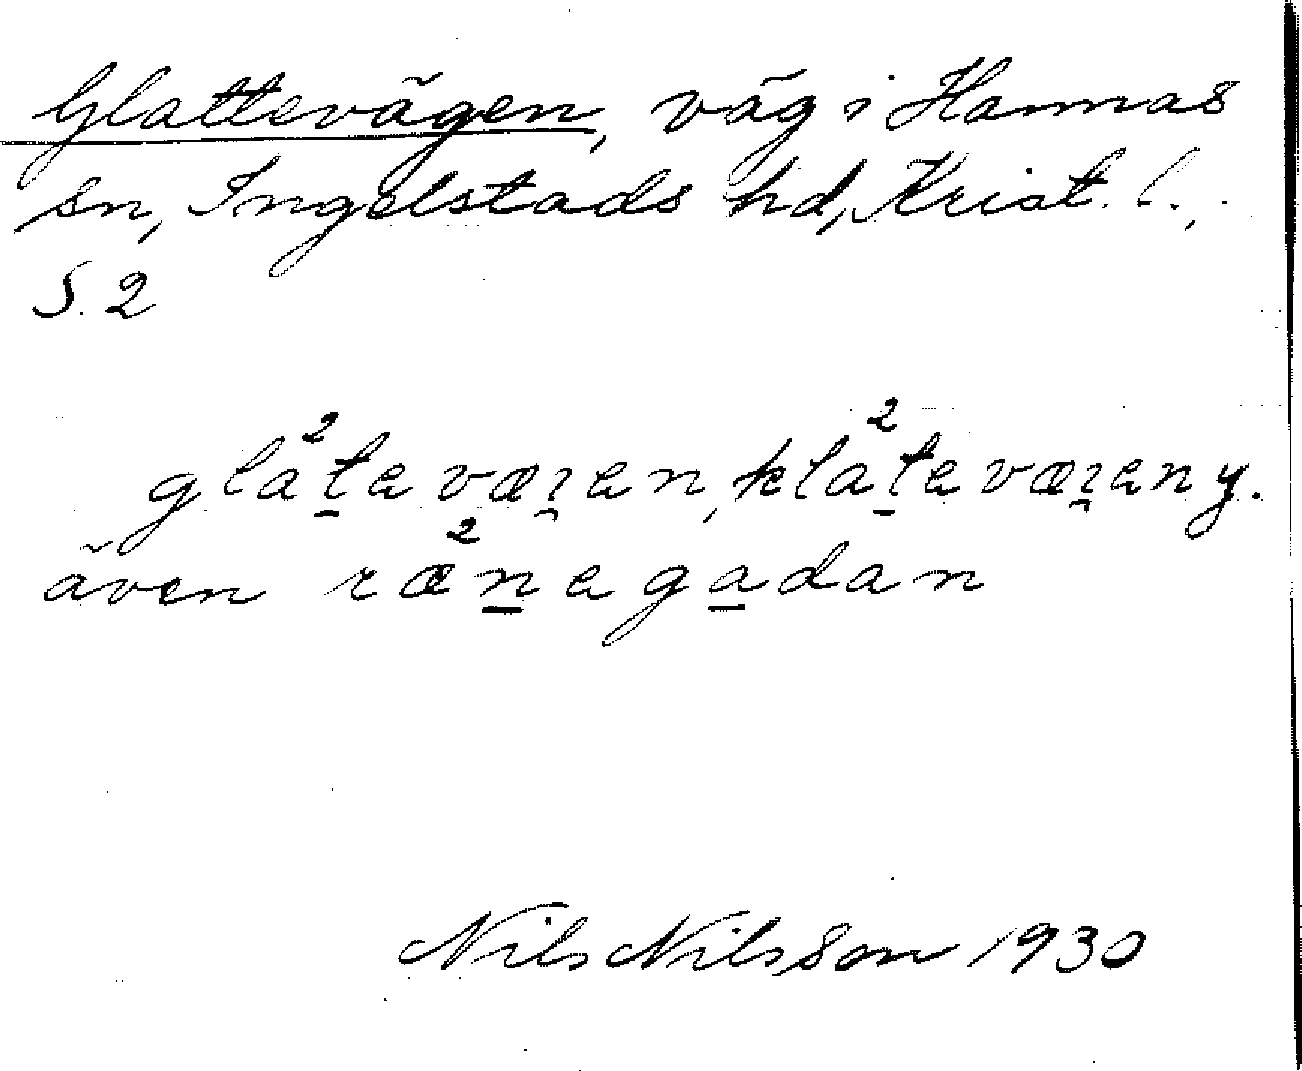 Glattevägen, väg i Hannas
sn, Ingelstads hd, Krist. l.,
S. 2
gla²t̲evæı̯en, kla²t̲evæı̯en y.
även ræ²n̲ega̲dan
Nils Nilsson 1930